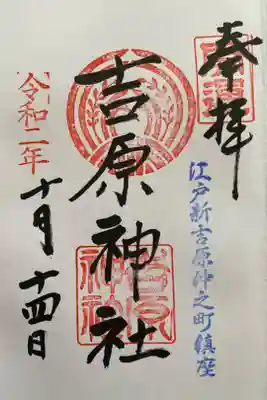 奉拝
江戸新吉原仲之町鎮座
吉原神社
吉原神社
令和二年
十月十四日